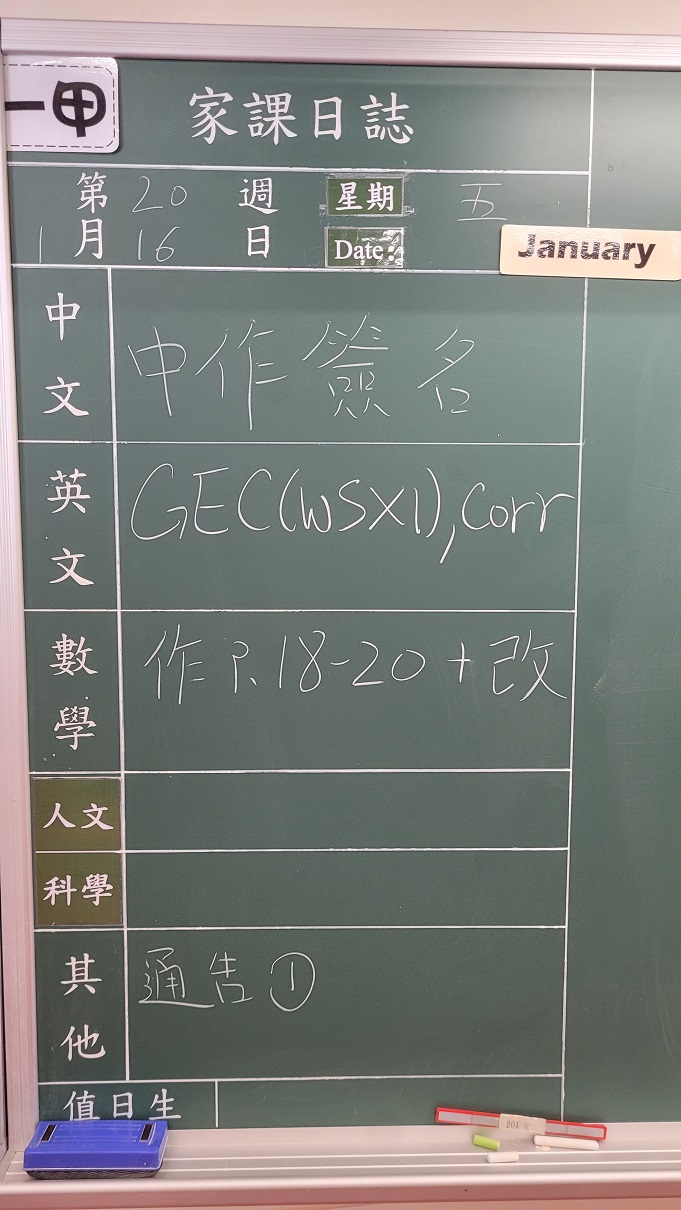 一甲
家課日誌
第 20 週 星期 五
1 月 16 日 Date: January
中文 中作簽名
英文 GEC(WSX1), Corr
數學 作 P. 18-20 + 改
人文
科學
其他 通告①
值日生
201